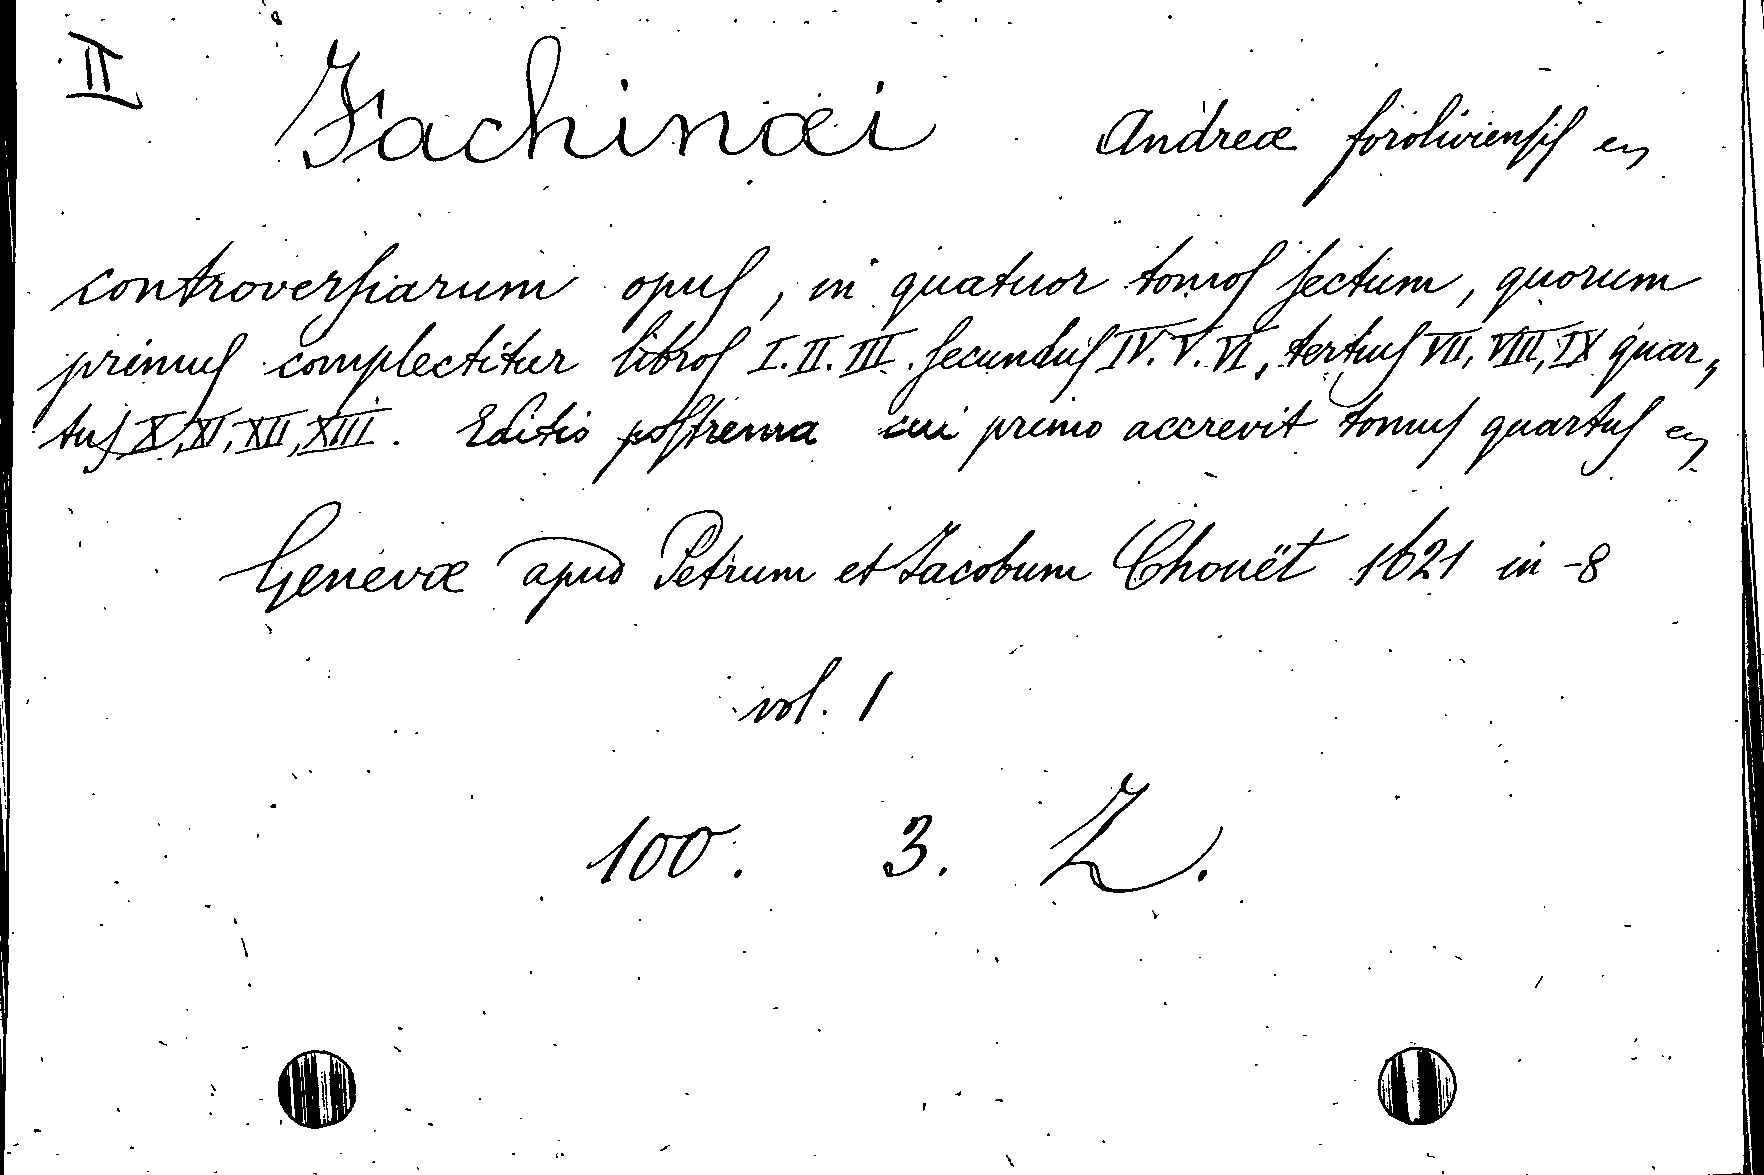 II Fachinæi Andreæ foroliviensis
controversiarum opus, in quatuor tomos sectum, quorum
primus complectitur libros I. II. III. secundus IV. V. VI, tertius VII, VIII, IX quar„
tus X, XI, XII, XIII. Editio postrema cui primo accrevit tomus quartus
Genevæ apud Petrum et Jacobum Chouët 1621 in-8
vol. 1
100. 3. Z.